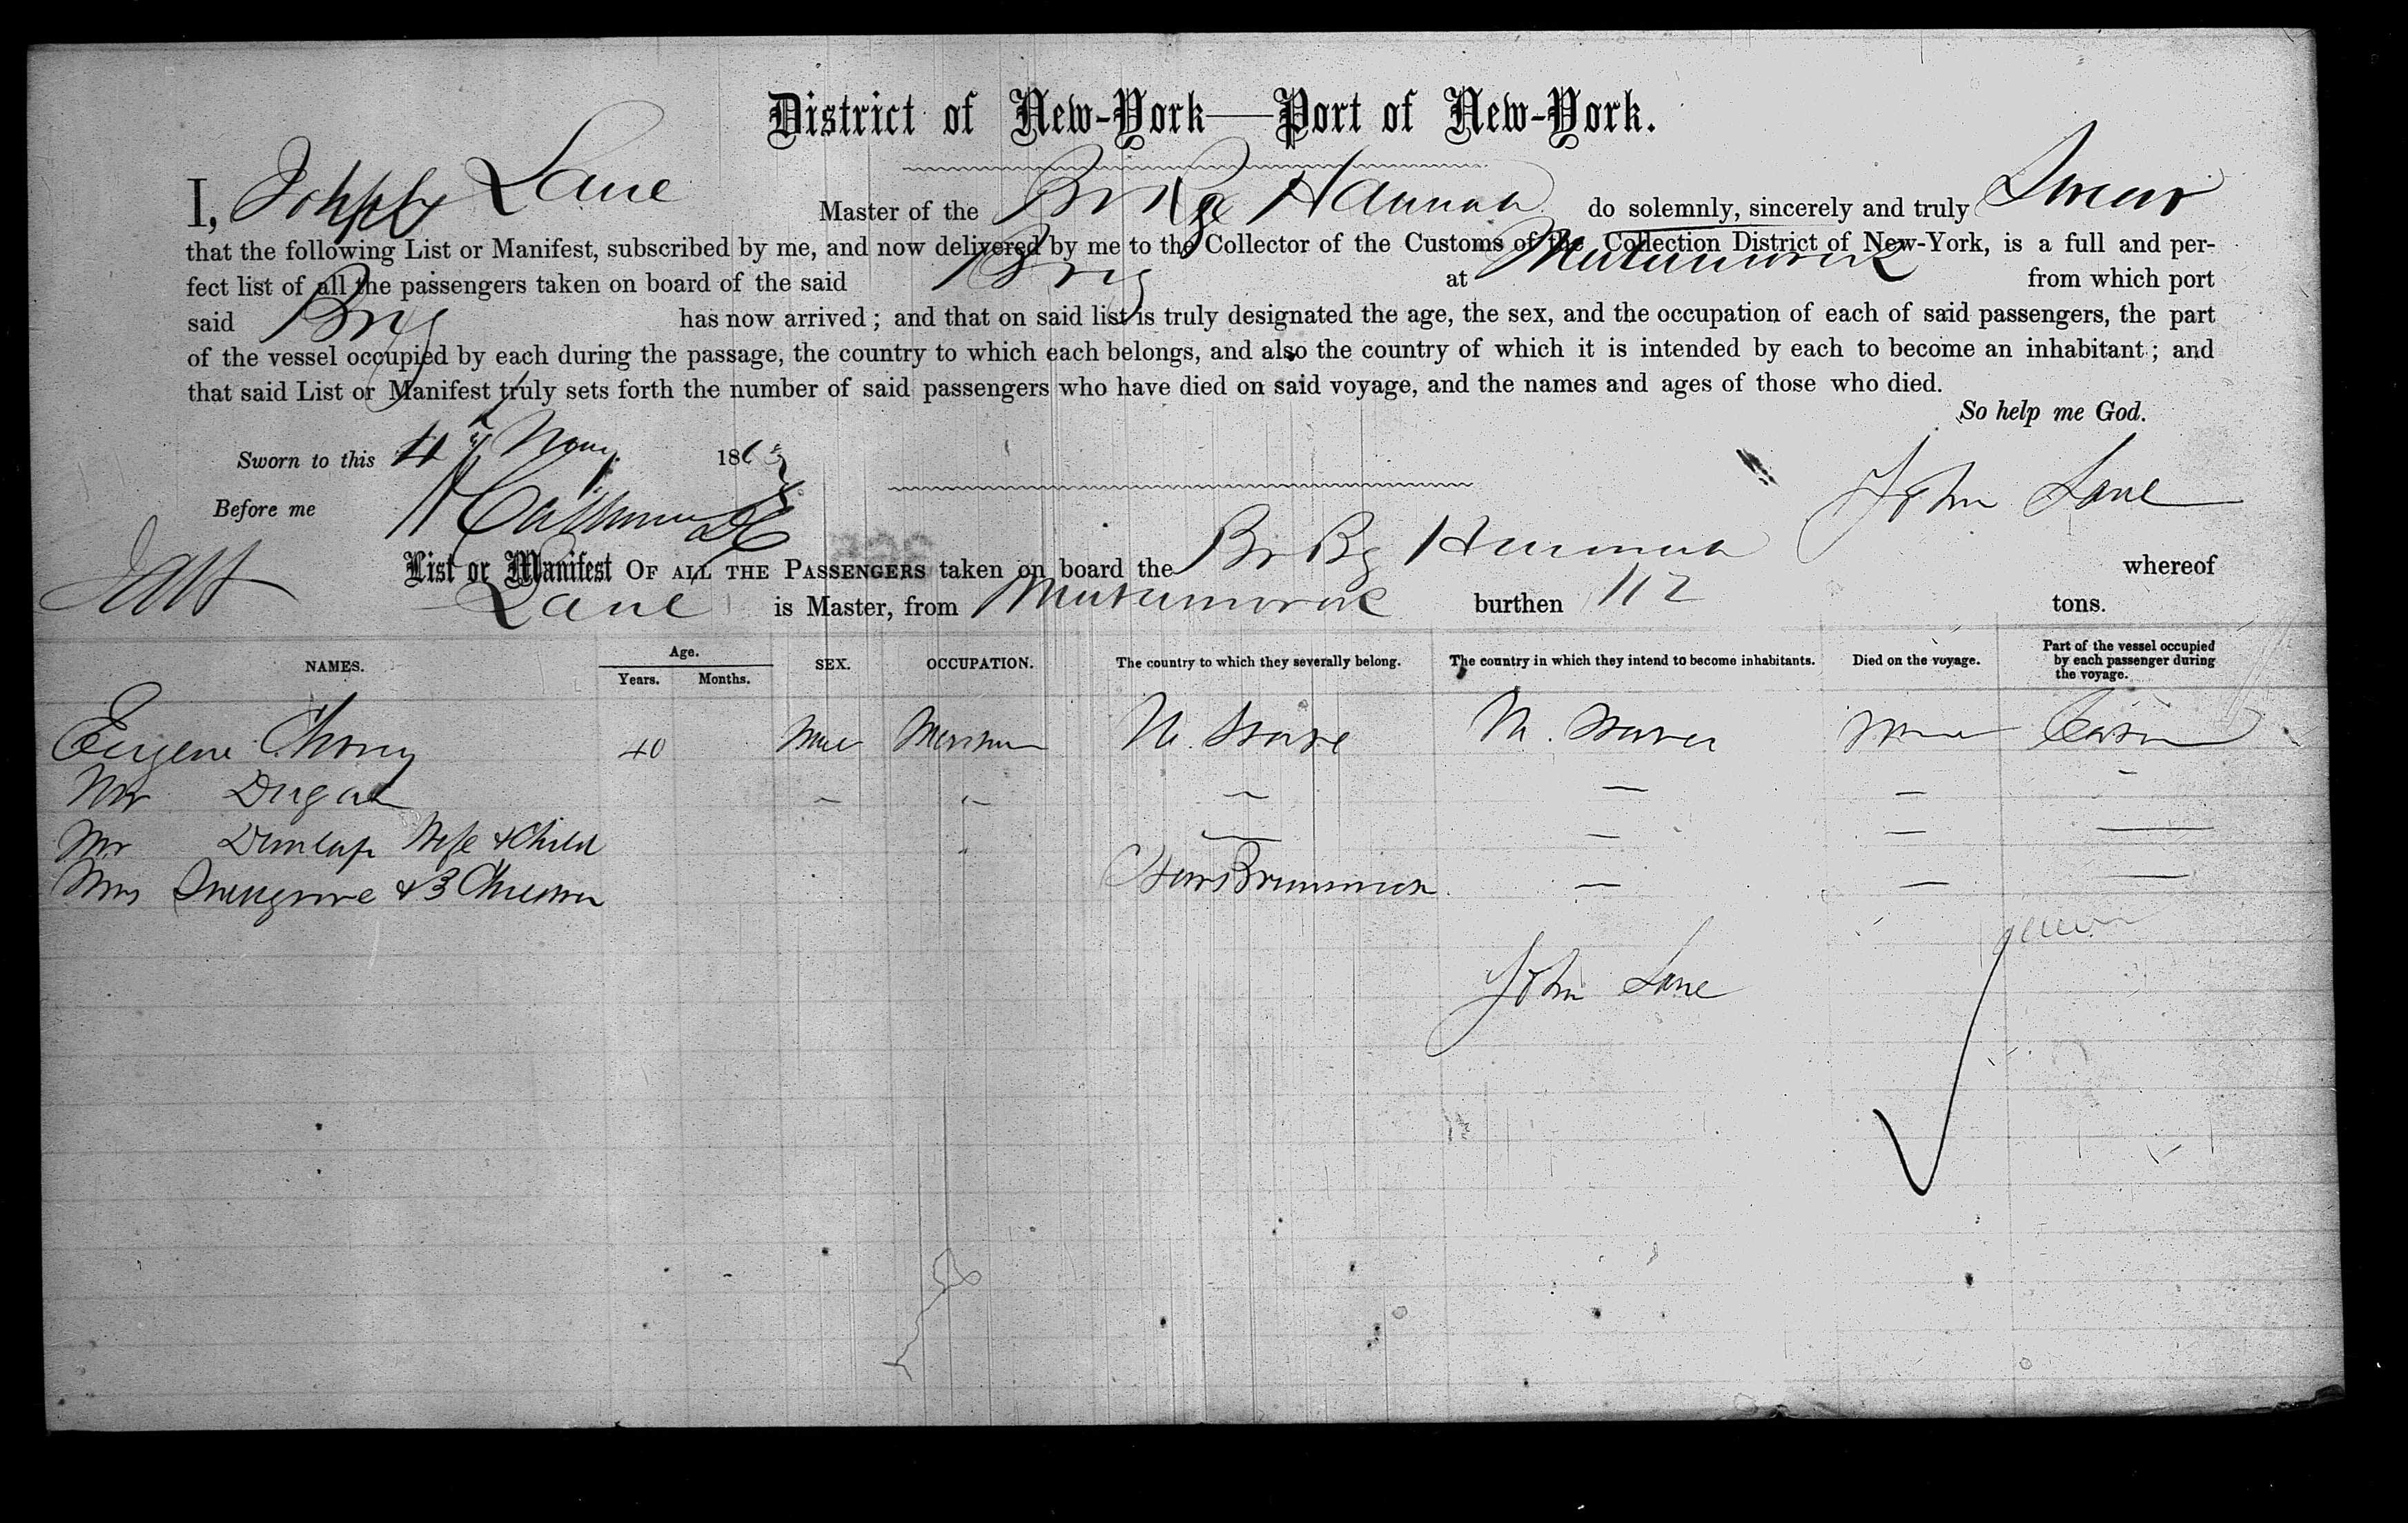 District of New-York—Port of New-York.
I, Lane Master of the Br Brig Hannah do solemnly, sincerely and truly Swear
that the following List or Manifest, subscribed by me, and now delivered by me to the Collector of the Customs of the Collection District of New-York, is a full and per-
fect list of all the passengers taken on board of the said Brig at from which port
said Brig has now arrived; and that on said list is truly designated the age, the sex, and the occupation of each of said passengers, the part
of the vessel occupied by each during the passage, the country to which each belongs, and also the country of which it is intended by each to become an inhabitant; and
that said List or Manifest truly sets forth the number of said passengers who have died on said voyage, and the names and ages of those who died.
So help me God.
Sworn to this 4 186
Before me
John Lane
List or Manifest OF ALL THE PASSENGERS taken on board the Br Bg Hannah whereof
Lane is Master, from burthen 112 tons.
NAMES. Age. Years. Months. SEX. OCCUPATION. The country to which they severally belong. The country in which they intend to become inhabitants. Died on the voyage. Part of the vessel occupied by each passenger during the voyage.
Eugene 40 Male U. States U. States None Cabin
Mr Dugan
Mr Dunlap Wife & Child
Mrs & 3 Children
John Lane